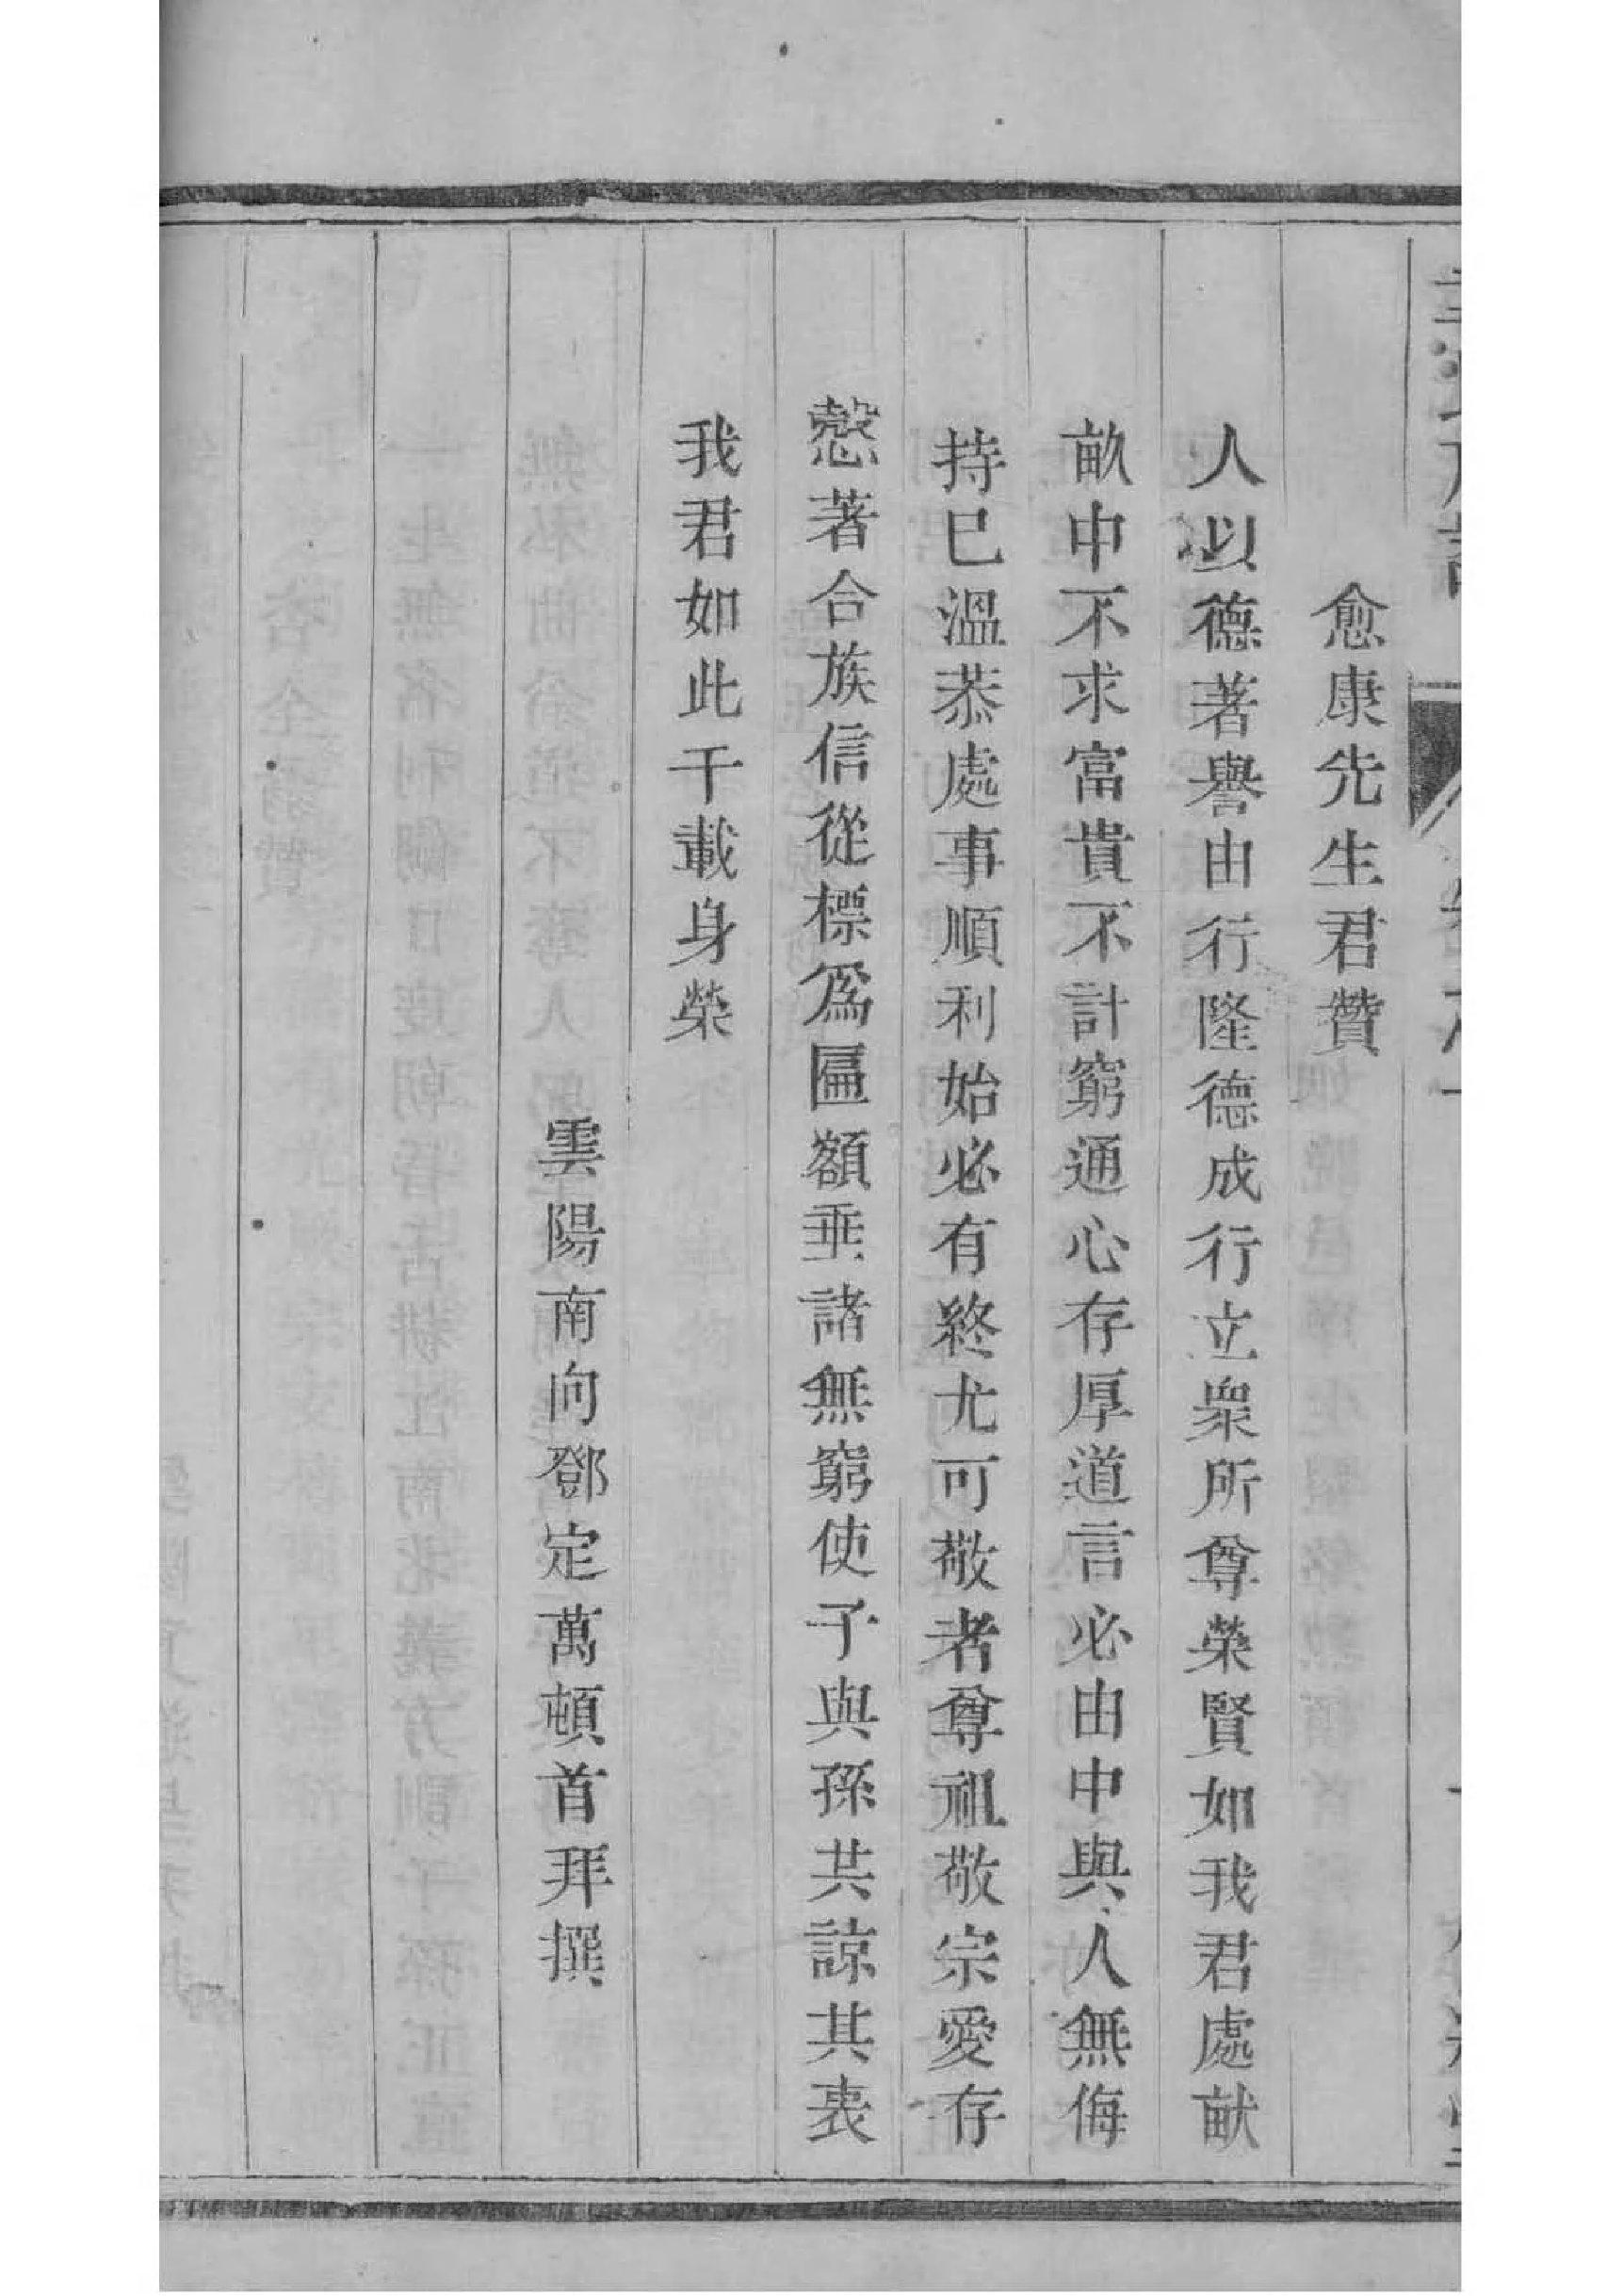 愈康先生君贊
人以德著譽由行隆德成行立衆所尊榮賢如我君處畎
畝中不求富貴不計窮通心存厚道言必由中與人無侮
持巳溫恭處事順利始必有終尤可敬者尊祖敬宗愛存
愨著合族信從標爲匾額垂諸無窮使子與孫共諒其衷
我君如此千載身榮
雲陽南向鄧定萬頓首拜撰